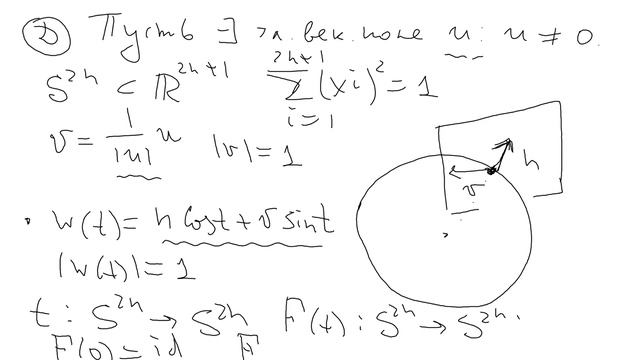 Д) Пусть ∃ гл. век. поле u: u ≠ 0.
S^{2n} ⊂ ℝ^{2n+1} \sum_{i=1}^{2n+1} (xi)^2 = 1
v = \frac{1}{|u|} u |v| = 1
n
v
w(t) = n cost + v sint
|w(t)| = 1
t: S^{2n} → S^{2n} F(t): S^{2n} → S^{2n}.
F(0) = id F